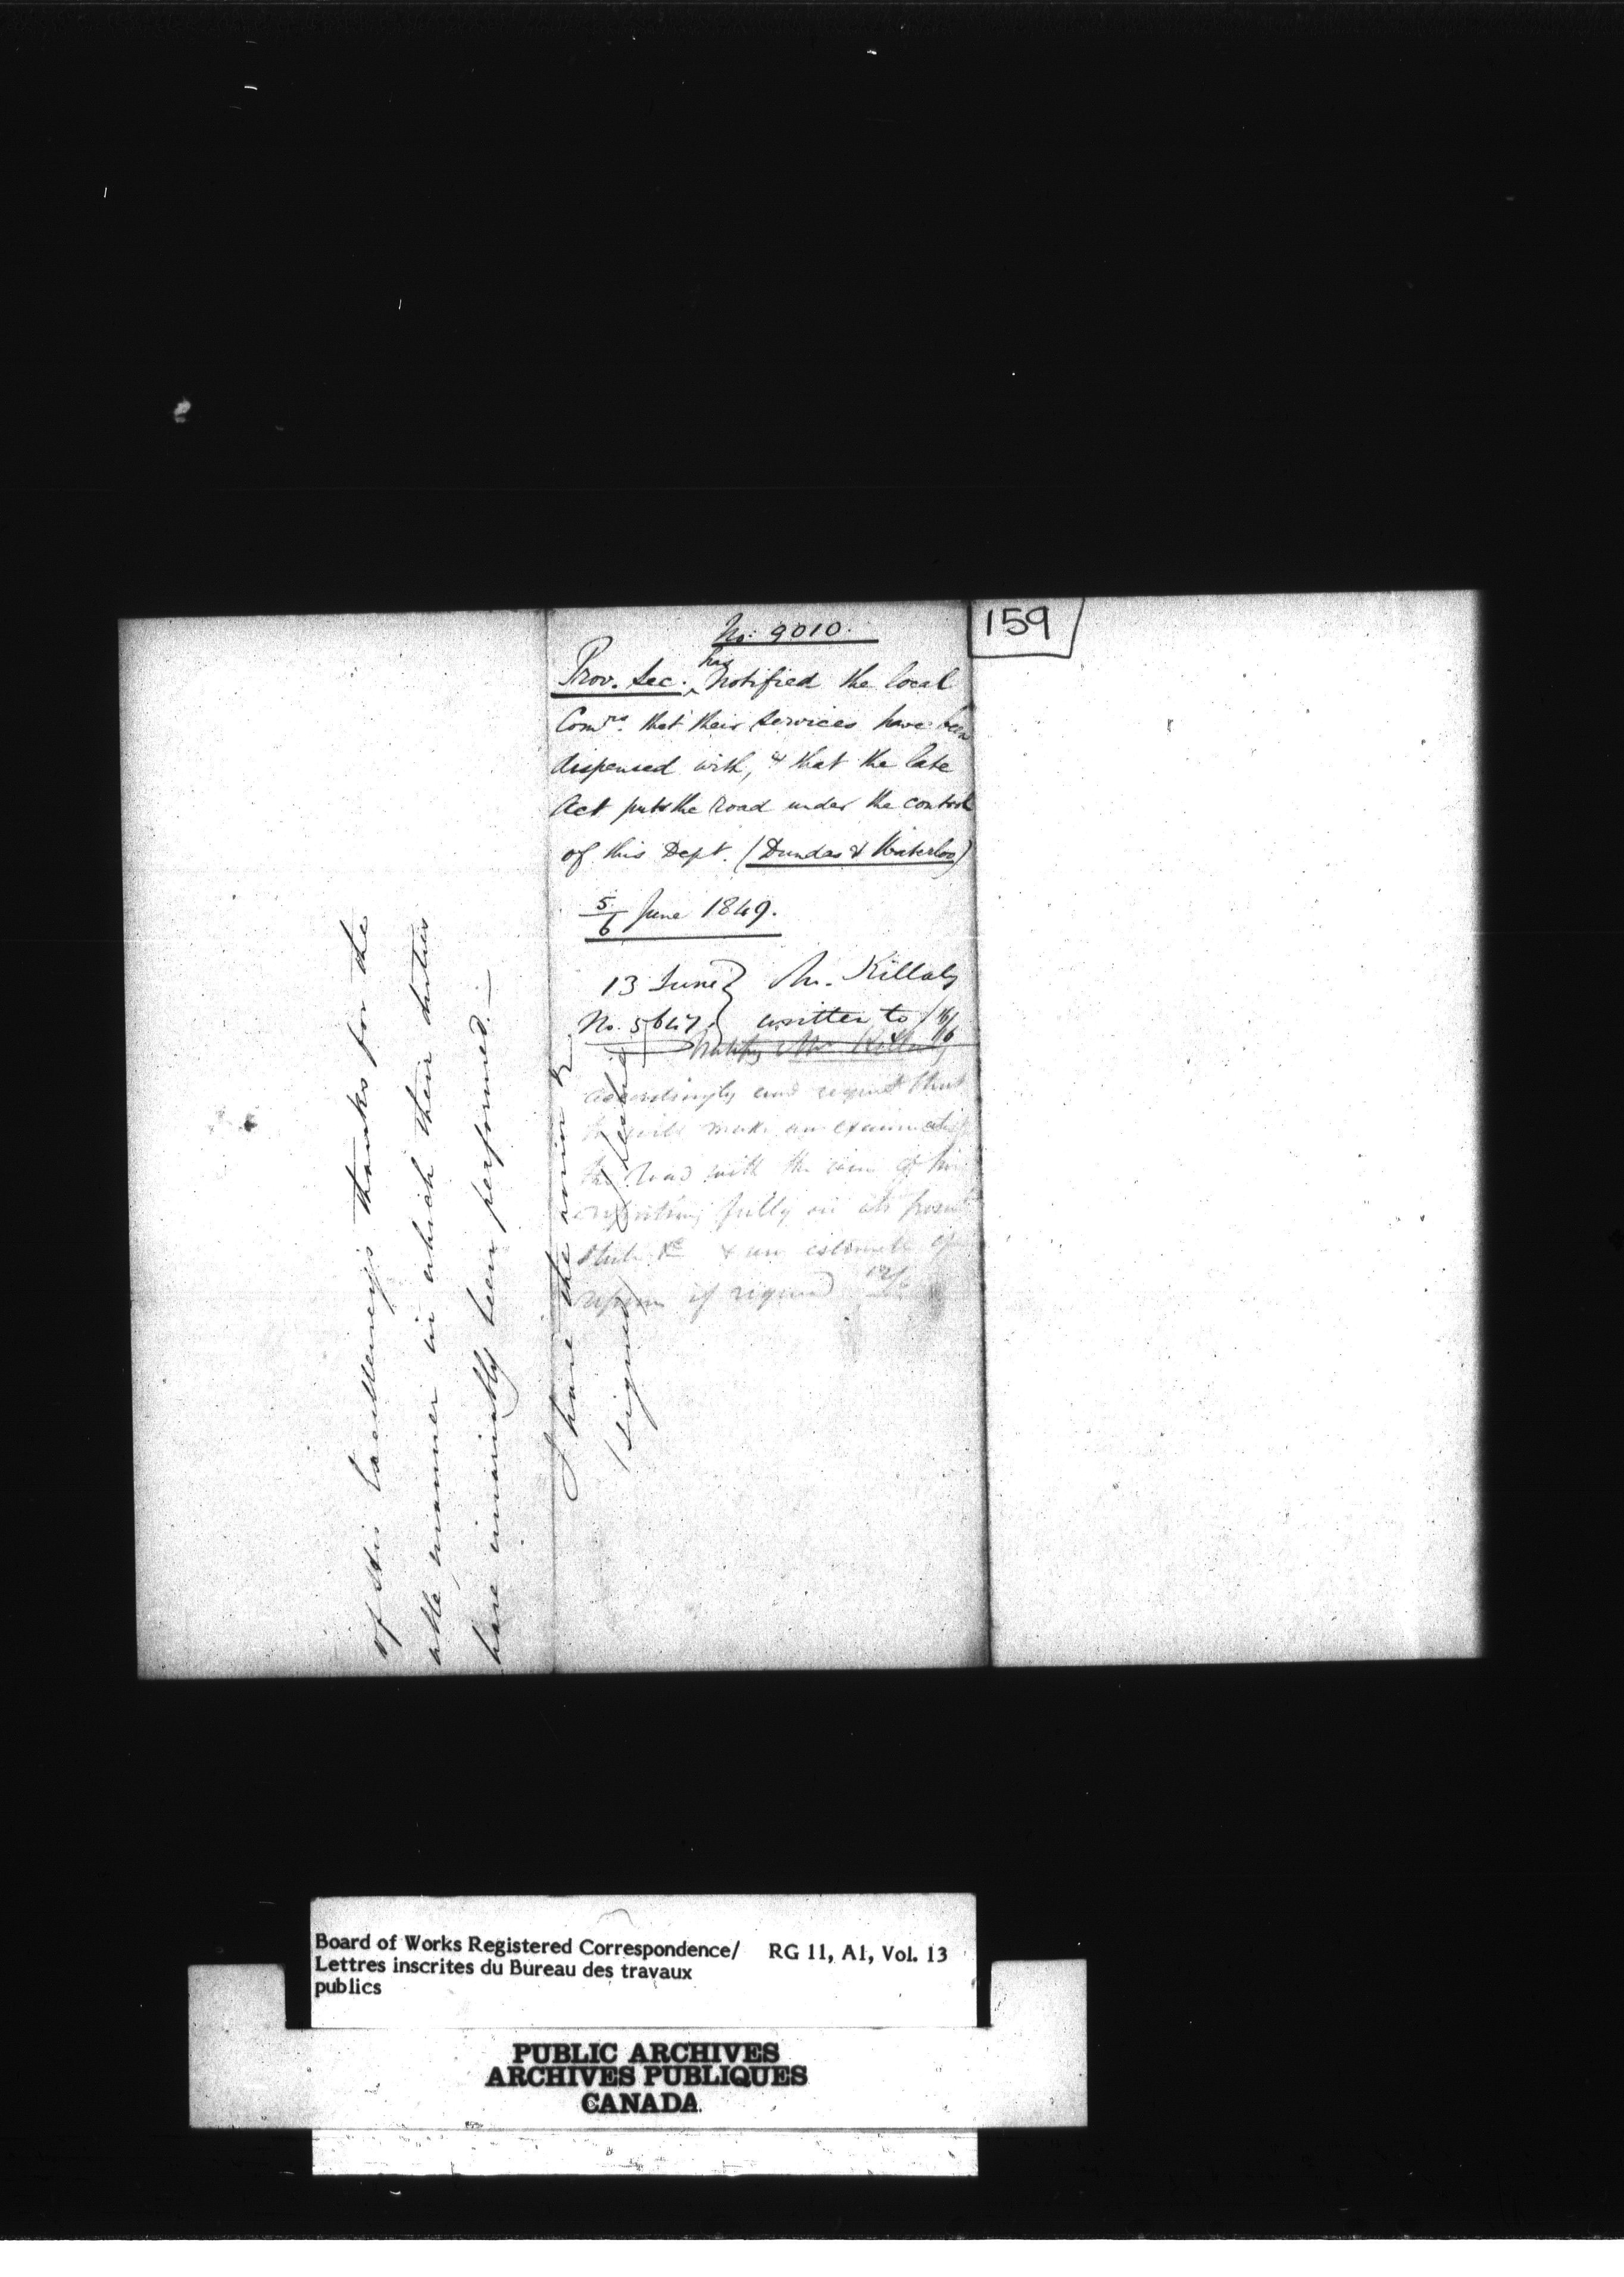 No: 9010.
159
Prov. Sec. has notified the local
Comrs. that their services have been
dispensed with, & that the late
Act puts the road under the control
of this Dept. (Dundas & Waterloo)
5/6 June 1849.
13 June } Mr. Killaly
No. 5647 } written to 16/6
Notify Mr Killaly
accordingly and request that
he will make an examination
the road with the view of his
reporting fully on its present
state &c & an estimate of
repairs if required 12/6
of His Excellency's thanks for the
able manner in which their duties
have invariably been performed.—
I have the honor &c
(signed)
Board of Works Registered Correspondence/ RG 11, A1, Vol. 13
Lettres inscrites du Bureau des travaux
publics
PUBLIC ARCHIVES
ARCHIVES PUBLIQUES
CANADA